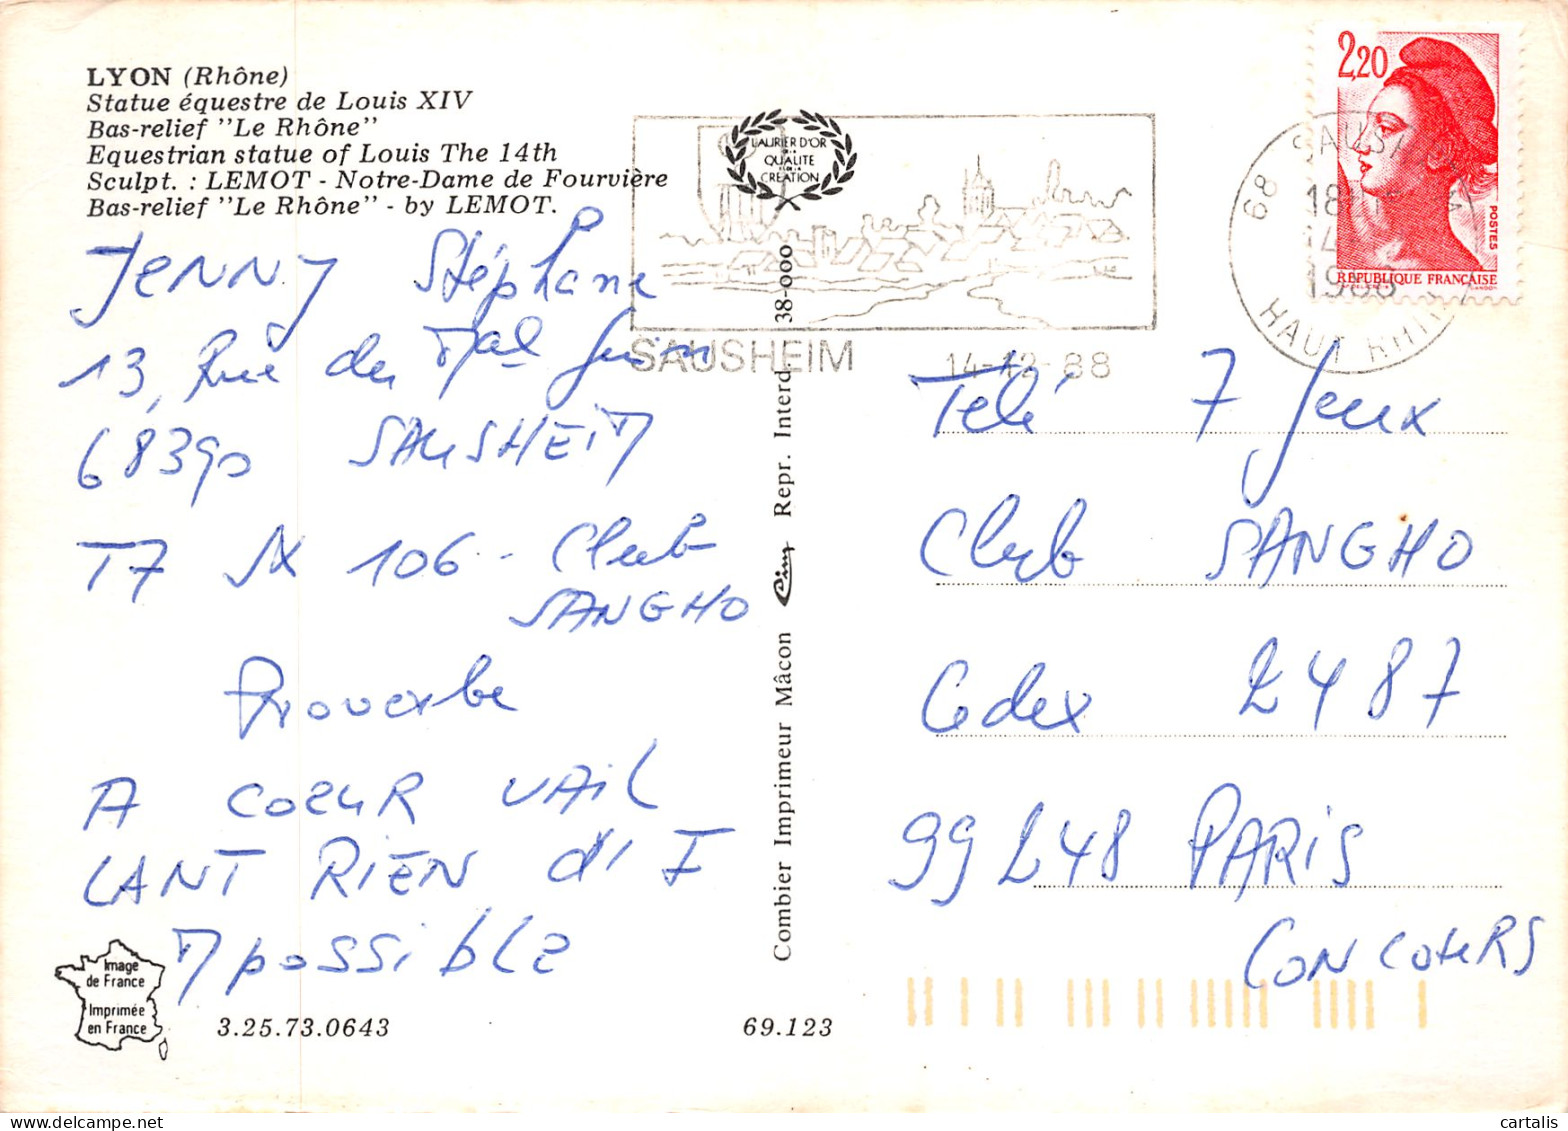 LYON (Rhône)
Statue équestre de Louis XIV
Bas-relief "Le Rhône"
Equestrian statue of Louis The 14th
Sculpt. : LEMOT - Notre-Dame de Fourvière
Bas-relief "Le Rhône" - by LEMOT.
JENNY Stéphane
13, Rue du Mal Juin
68390 SAUSHEIM
T7 JX 106 - Club
SANGHO
Proverbe
A COEUR VAIL
LANT RIEN d'I
Mpossible
Image
de France
Imprimée
en France
3.25.73.0643
69.123
Combier Imprimeur Mâcon Cim Repr. Interd. 38-000
LAURIER D'OR
DE LA
QUALITE
ET DE LA
CREATION
SAUSHEIM
14-12-88
68 SAUSHEIM
18
14
1988
HAUT RHIN
2,20
POSTES
REPUBLIQUE FRANÇAISE
Télé 7 Jeux
Club SANGHO
Cedex 2487
99248 PARIS
CONCOURS
cartalis